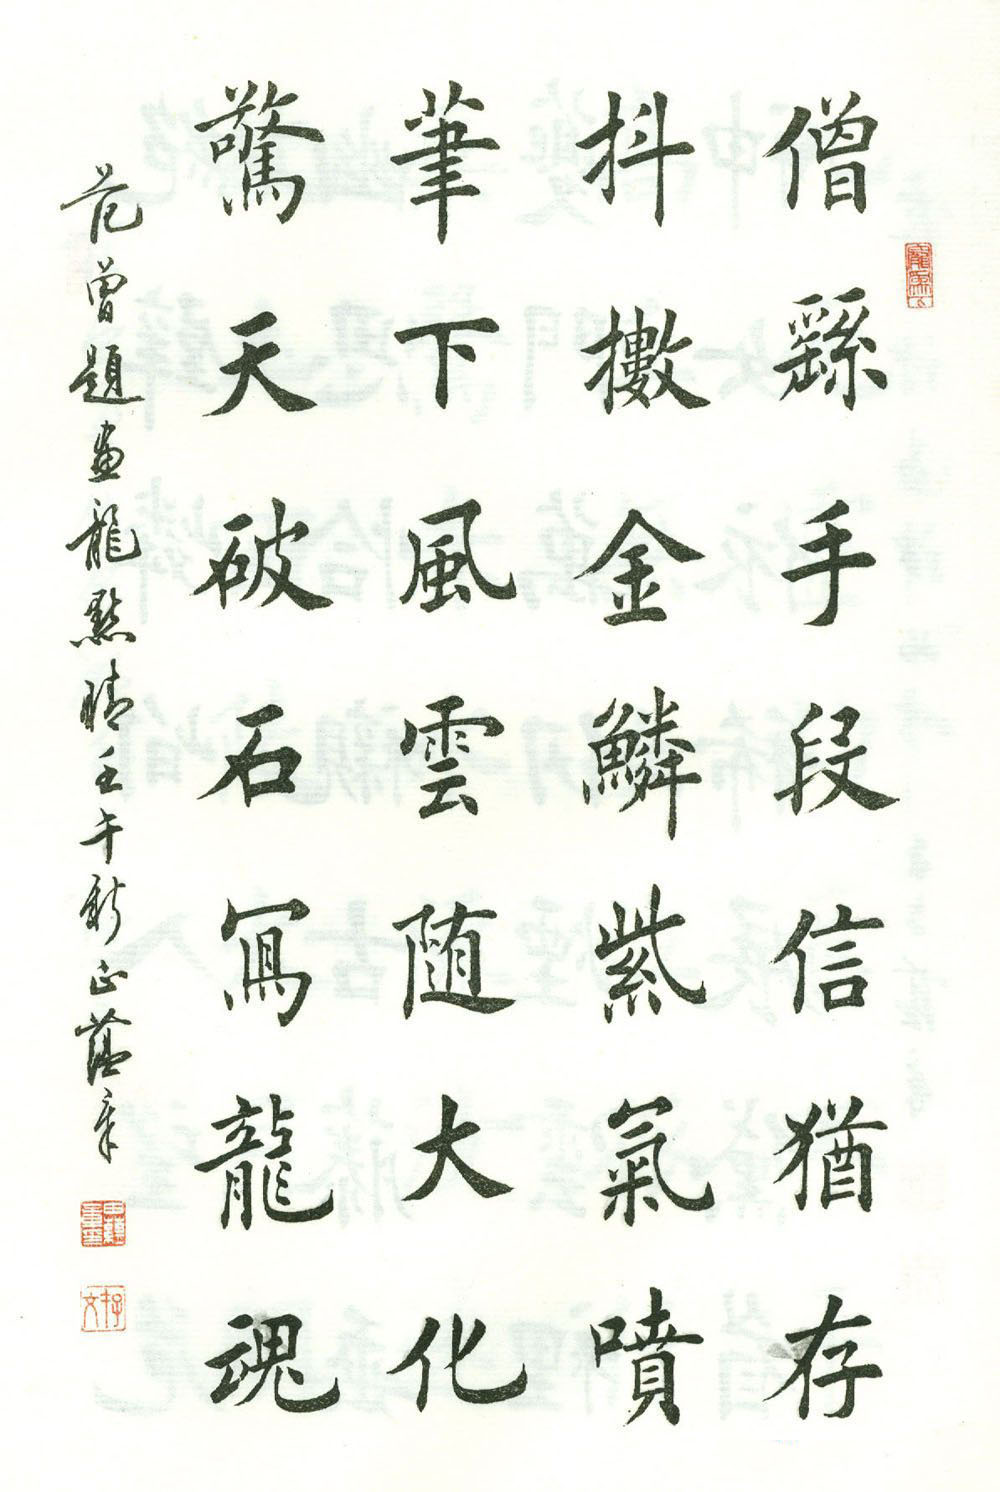 僧繇手段信猶存
抖擻金鱗紫氣噴
筆下風雲随大化
驚天破石寫龍魂
范曾題畫龍點睛壬午新正蕴章